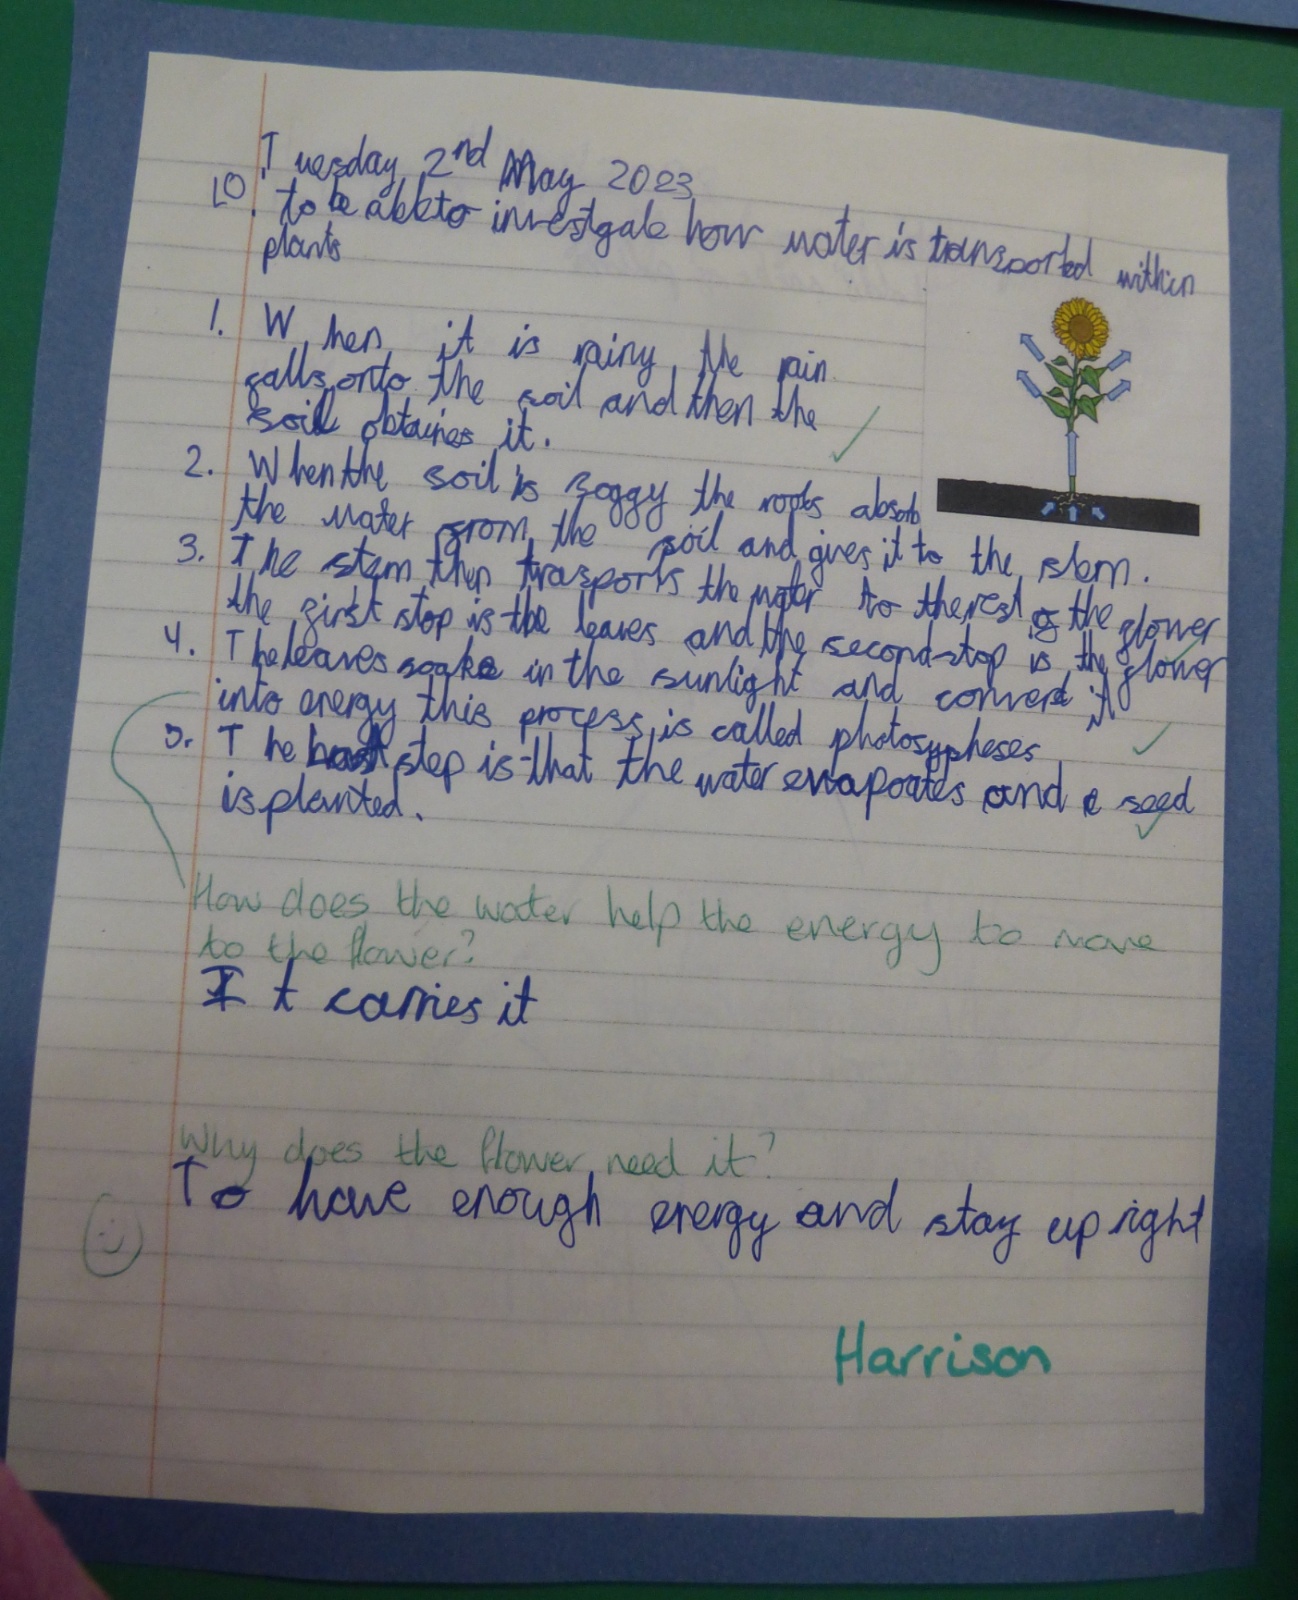 Tuesday 2nd May 2023
LO. to be able to investgate how water is transported within
plants
1. When it is rainy the rain
falls onto the soil and then the
soil obtaines it.
2. When the soil is soggy the roots absorb
the water from the soil and gives it to the stem.
3. The stem then trasports the water to the rest of the flower
the first stop is the leaves and the second stop is the flower
4. The leaves soake in the sunlight and converd it
into energy this process is called photosypheses
5. The last step is that the water evapoates and a seed
is planted.
How does the water help the energy to move
to the flower?
It carries it
Why does the flower need it?
To have enough energy and stay up right
Harrison